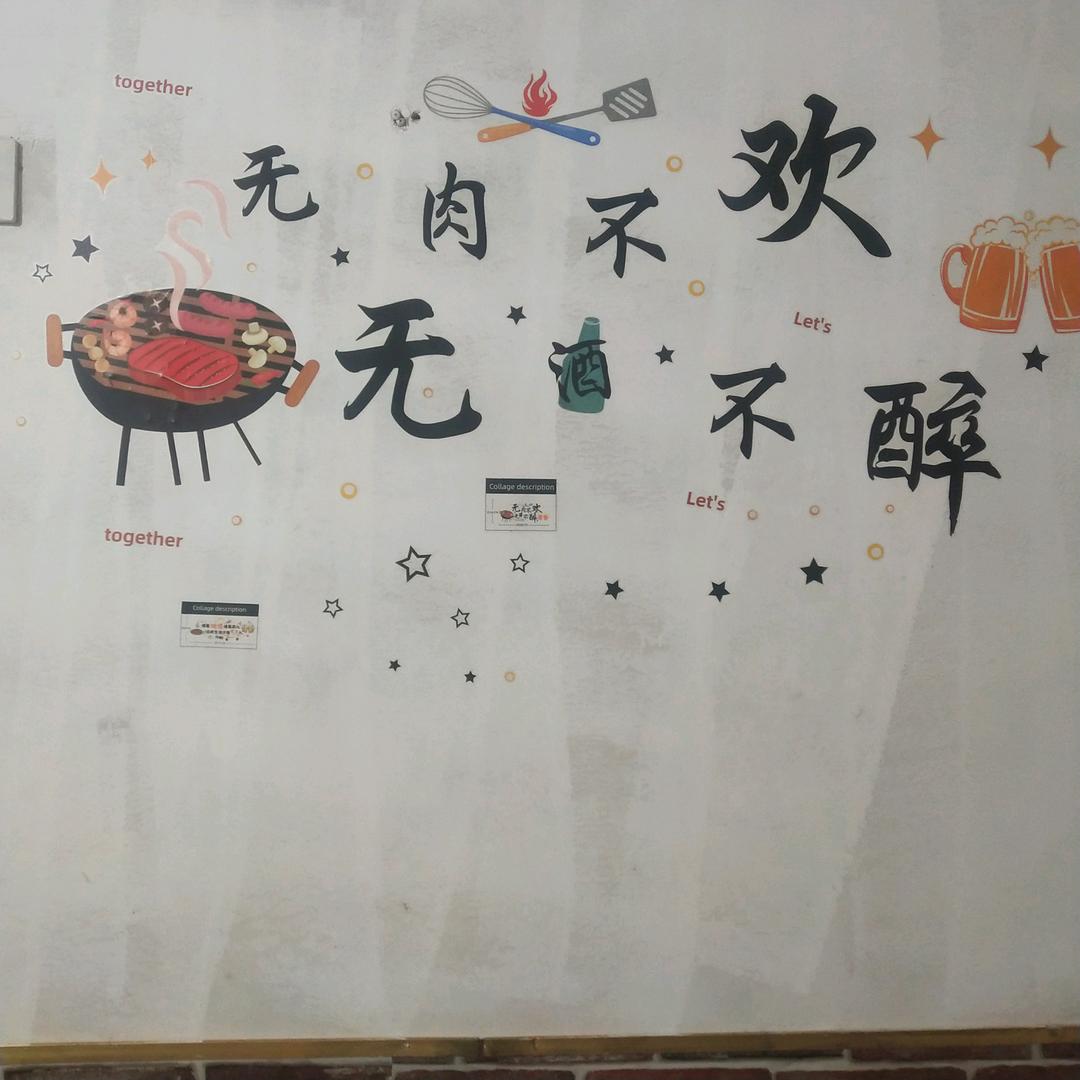 together
无肉不欢
Let's
无酒不醉
Collage description
Let's
together
Collage description